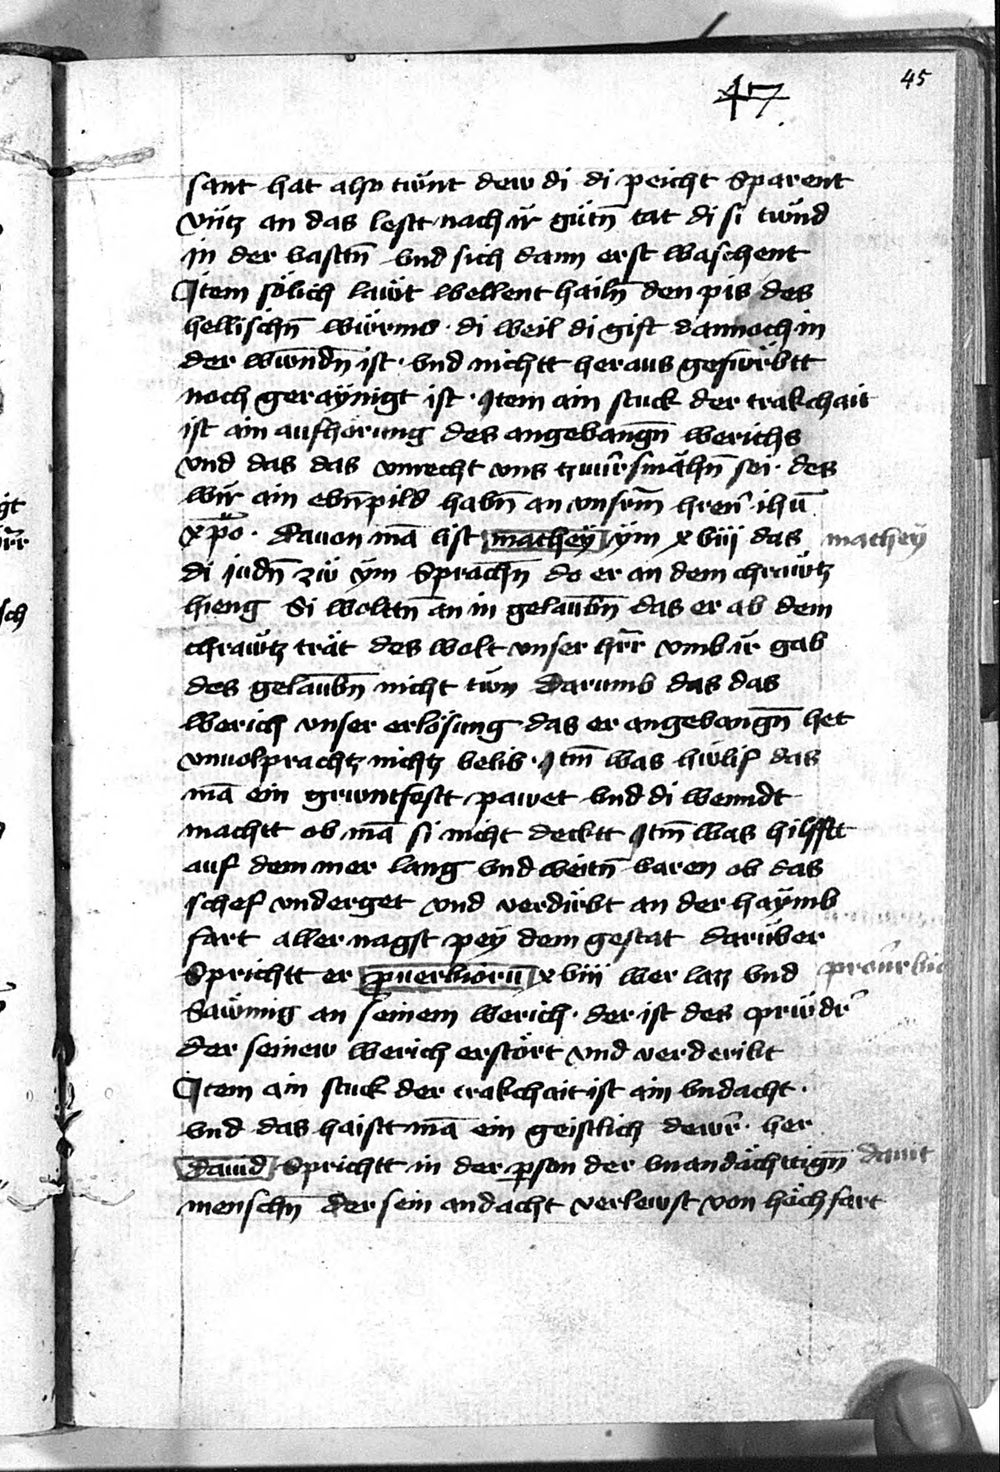 45
47
sant hat also twnt dew di di peicht Sparent
vütz an das lestt nach ir gütn̄ tat di si twnd
in der vasttn̄ vnd sich dann erst waschent
Item sölich lawt wellent hailn̄ den pis des
hellischn̄ würms · di weil di gift dannoch in
der wundn̄ ist · vnd nichtt heraus gefürbtt
noch geraÿnigt ist · Item ain stuck der trakchait
ist ain aufhörung des angevangn̄ werichs
vnd das das vnrecht vns tzw sei · des
wir ain ebnpild habn̄ an vnsrm̄ hren̄ ihū
xp̄o · Dauon mā list mathey ym xviij das
mathey
di judn̄ zw ym Sprachn̄ do er an dem chrawtz
hieng Si wolttn̄ an in gelaubn̄ das er ab dem
chrawtz trät des wolt vnser hr̄r vmb ir gab
des gelaubn̄ nicht twn Darumb das das
werich vnser erlösung das er angevangn̄ het
vnuolprachtz nichtz belib · Itm̄ was hwlif das
mā ein gruntfestt pawet vnd di wenndt
machtt ob mā si nicht decktt Itm̄ was hilfftt
auf dem mer lang vnd weitn̄ varen ob das
schef vnderget vnd verdirbt an der haÿmb
fart aller nagst peÿ dem gestat darüber
Sprichtt er puerbiorū xviij wer laz vnd
Sawmig an seinem werich · der ist des prüdr̄
der seinew werich erstört vnd verderibt
Item ain stuck der trakchait ist ain vndacht ·
vnd das haistt mā ein geistlich dewr̄ · her
dauid Sprichtt in der pson der vnandächttign̄
dauit
menschn̄ der sein andacht verlewst von höchfart